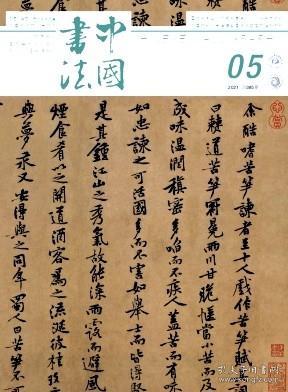 中國
書法
05
2021
余酷嗜苦筍諫者至十人戲作苦筍賦
曰僰道苦筍冠冕兩川甘脆愜當小苦而
成味溫潤縝密多啗而不疾人蓋苦而有味
如忠諫之可活國多而不害如舉士而皆得
是其鍾江山之秀氣故能深雨露而避風
煙食肴以之開道酒客為之流涎彼桂
與夢永又安得與之同年蜀人曰苦筍不可
孔夫子旧书网